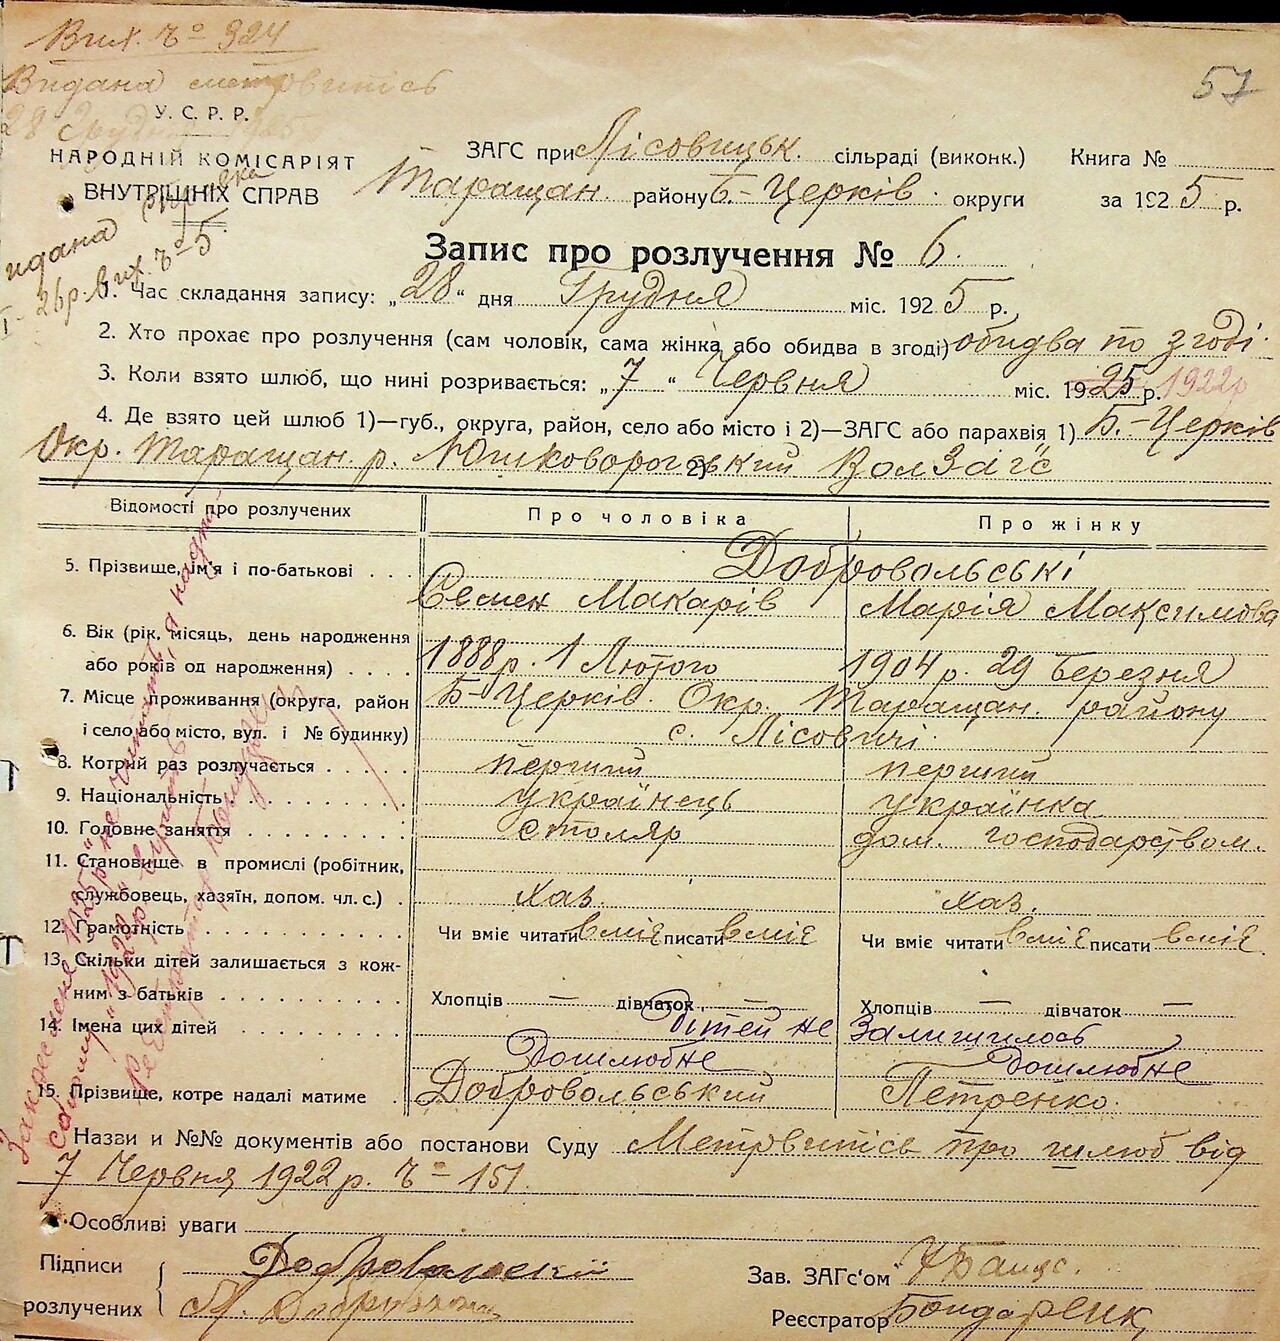 Вих. № 324
Видана метровипісь
57
28 Грудня 1925
У. С. Р. Р.
НАРОДНІЙ КОМІСАРІЯТ
ВНУТРІШНІХ СПРАВ
ЗАГС при Лісовицьк. сільраді (виконк.) Книга №
Таращан. району Б.-Церків. округи за 1925 р.
Запис про розлучення № 6.
1. Час складання запису: „28“ дня Грудня міс. 1925 р.
2. Хто прохає про розлучення (сам чоловік, сама жінка або обидва в згоді) обидва по згоді.
3. Коли взято шлюб, що нині розривається: „7“ Червня міс. 1925 р. 1922 р
4. Де взято цей шлюб 1)—губ., округа, район, село або місто і 2)—ЗАГС або парахвія 1) Б.-Церків
Окр. Таращан. р. 2) Юшковорогський ВолЗагс
Відомості про розлучених Про чоловіка Про жінку
Добровольські
5. Прізвище, ім'я і по-батькові Семен Макарів Марія Максимова
6. Вік (рік, місяць, день народження
або років од народження) 1888 р. 1 Лютого 1904 р. 29 Березня
7. Місце проживання (округа, район Б-Церків. Окр. Таращан. району
і село або місто, вул. і № будинку) с. Лісовичі.
8. Котрий раз розлучається перший перший
9. Національність українець українка
10. Головне заняття столяр дом. господарством.
11. Становище в промислі (робітник,
службовець, хазяїн, допом. чл. с.) хаз. хаз.
12. Грамотність Чи вміє читати вміє писати вміє Чи вміє читати вміє писати вміє
13. Скільки дітей залишається з кож-
ним з батьків Хлопців — дівчаток — Хлопців — дівчаток —
14. Імена цих дітей Дітей не Залишилось
Дошлюбне Дошлюбне
15. Прізвище, котре надалі матиме Добровольський Петренко.
Назви и №№ документів або постанови Суду Метровипісь про шлюб від
7 Червня 1922 р. № 151.
Особливі уваги
Підписи Добровольский
розлучених М. Добровольська
Зав. ЗАГс'ом
Реєстратор Бондаренк
Закреслене „1925 р“ не читать, а надпі
саному „1922 р“ вірить
Реєстратор Бондаренк